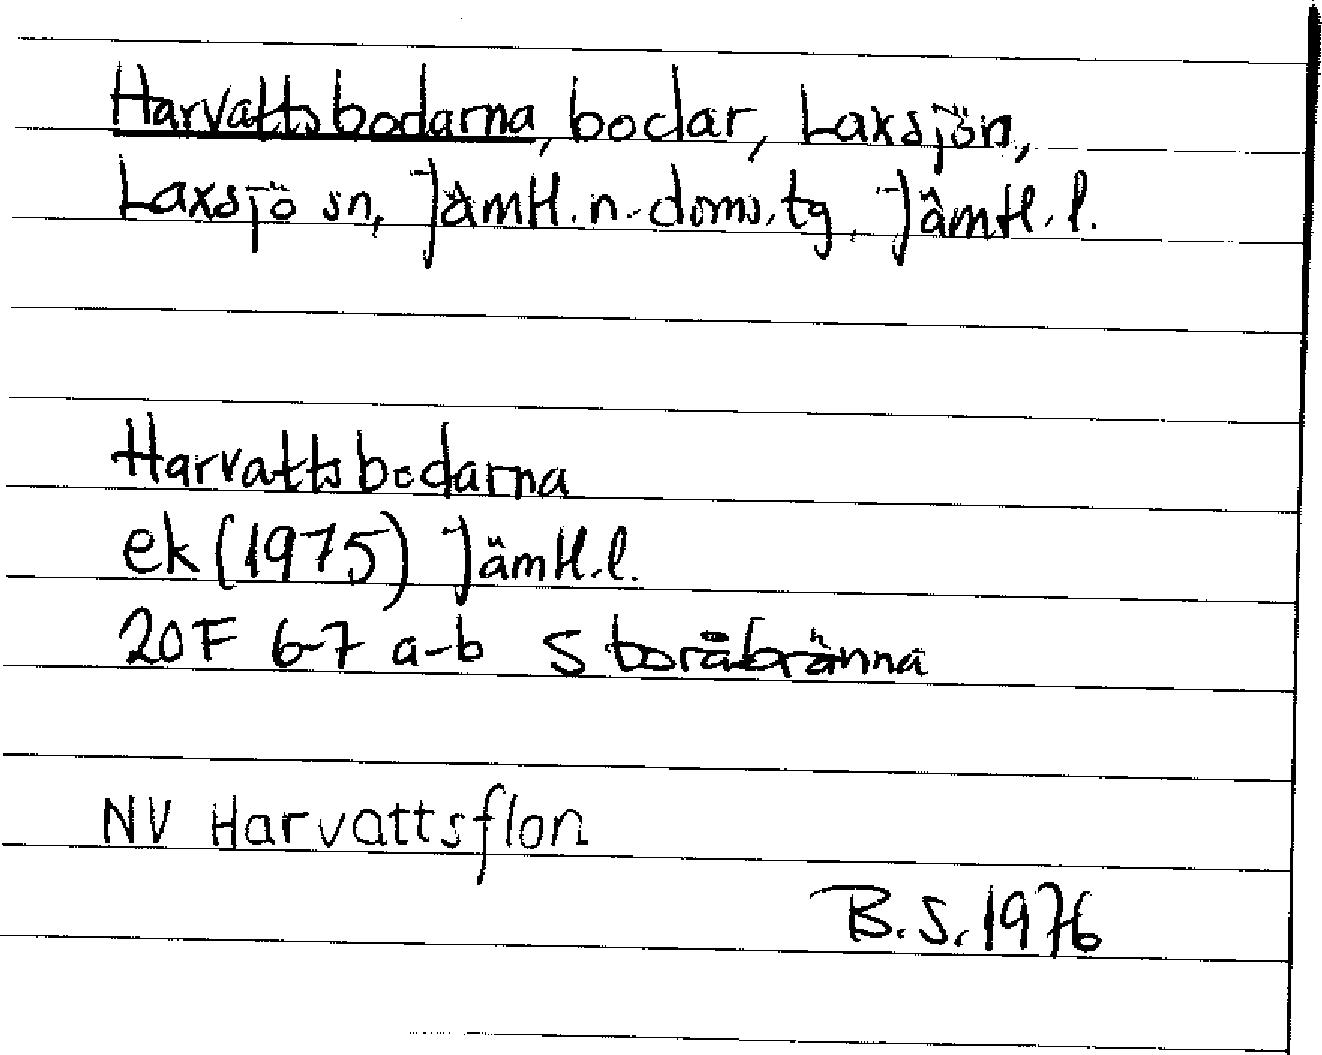 Harvattsbodarna, bodar, Laxsjön,
Laxsjö sn, Jämtl. n. doms. tg, Jämtl. l.
Harvattsbodarna
ek (1975) Jämtl. l.
20F 6-7 a-b Storåbränna
NV Harvattsflon
B.S. 1976